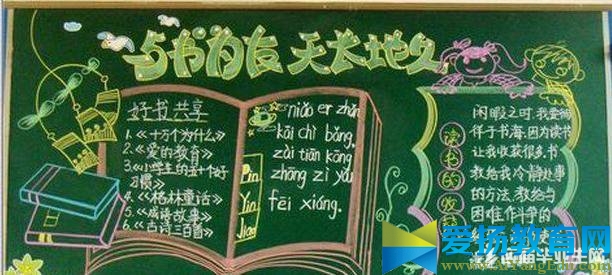 与书为友 天长地久
好书共享
1.《十万个为什么》
2.《爱的教育》
3.《小学生的五十个好
习惯》
4.《格林童话》
5.《成语故事》
6.《古诗三百首》
niǎo er zhǎn
kāi chì bǎng,
zài tiān kōng
zhōng zì yóu
fēi xiáng.
Pin
Yin
Jiao
读书的收获
闲暇之时,我爱徜
徉于书海,因为读书
让我收获很多.书
教给我冷静处事
的方法,教给与
困难作斗争的
爱扬教育网